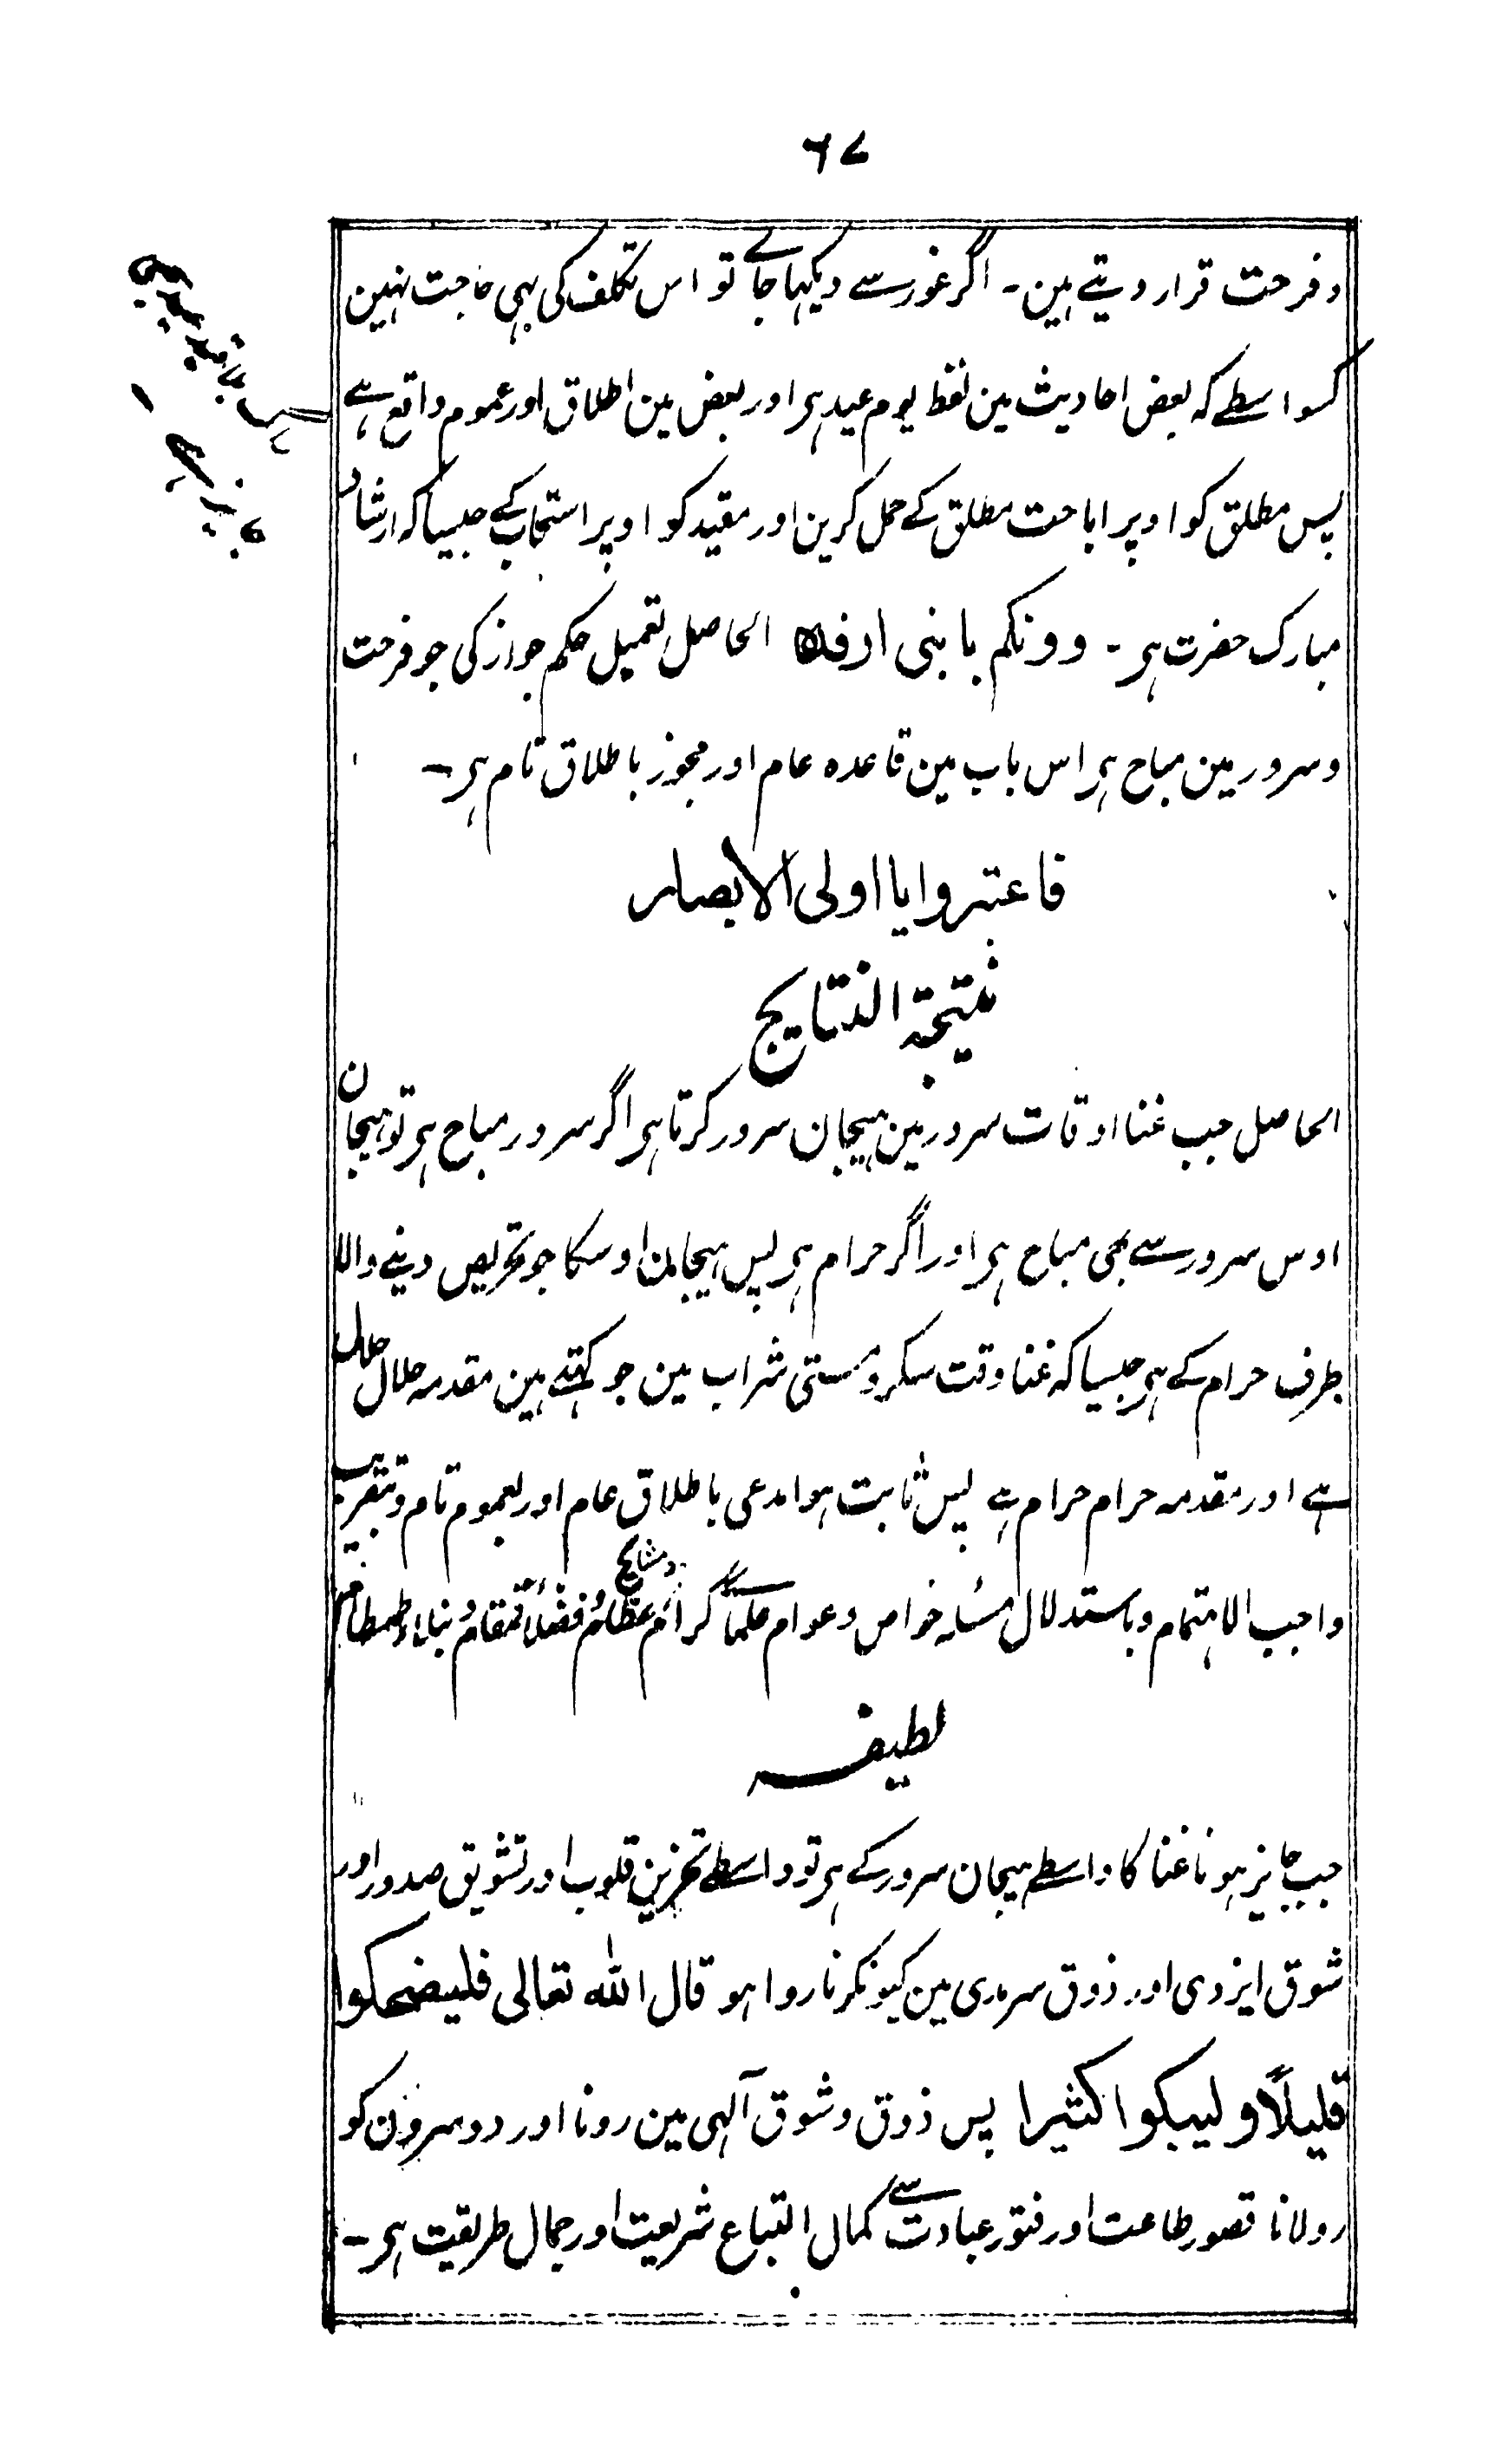 ٦٧
وفرحت قرار دیتے ہین۔ اگر غور سے دیکہا جاے تو اس تکلف کی بہی حاجت نہین
کسواسطے کہ بعض احادیث مین لفظ یوم عید ہی اور بعض مین اطلاق اور عموم واقع ہے
پس مطلق کو اوپر اباحت مطلق کے حمل کرین اور مقید کو اوپر استحباب کے جیسا کہ ارشاد
مبارک حضرت ہی۔ دونکم یا بنی ارفدہ الحاصل تعمیل حکم جواز کی جو فرحت
وسرور مین مباح ہی اس باب مین قاعدہ عام اور مجوز باطلاق تام ہی۔
فاعتبروا یا اولی الابصار
نتیجۃ النتایج
الحاصل جب غنا اوقات سرور مین ہیجان سرور کرتا ہی اگر سرور مباح ہی تو ہیجان
اوس سرور سے بھی مباح ہی اور اگر حرام ہی پس ہیجان اوسکا جو تحریص دینے والا
طرف حرام کے ہی جیسا کہ غنا وقت سکر و مستی شراب مین جو کہتے ہین مقدمہ حلال حلال
ہے اور مقدمہ حرام حرام ہے پس ثابت ہوا مدعی باطلاق عام اور بعموم تام و تقریب
واجب الاہتمام و باستدلال مسئلہ خواص و عوام علمائے کرام و مشایخ عظام فضلاء قمقام
لطیفہ
جب جایز ہونا غنا کا واسطے ہیجان سرور کے ہی تو واسطے تحزین قلوب اور تشویق صدور اور
شوق ایزدی اور ذوق سرمدی مین کیونکر ناروا ہو قال اللہ تعالی فلیضحکوا
قلیلاً ولیبکوا کثیرا پس ذوق و شوق آلہی مین رونا اور دوسرون کو
رولانا قصور طاعت اور فتور عبادت سے کمال اتباع شریعت اور جمال طریقت ہی۔